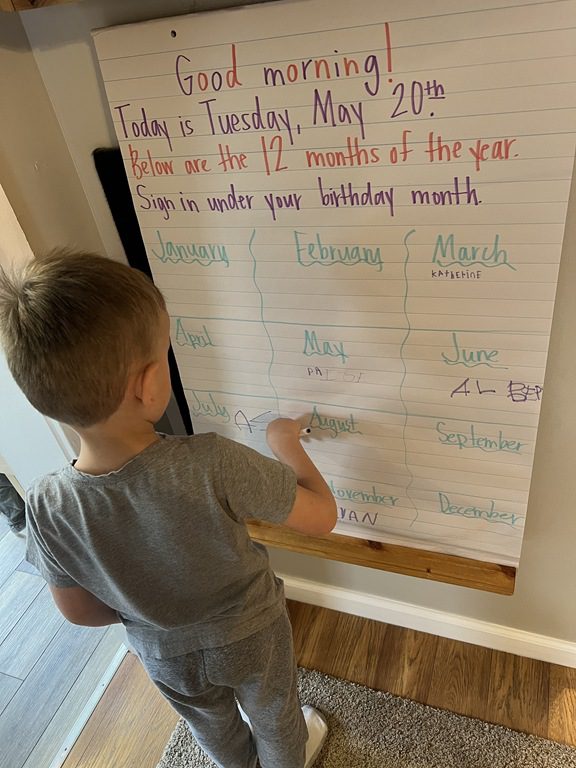 Good morning!
Today is Tuesday, May 20th.
Below are the 12 months of the year.
Sign in under your birthday month.
January February March
KAtHEriNE
April May June
PAIGE
AL
July August September
November December
VAN